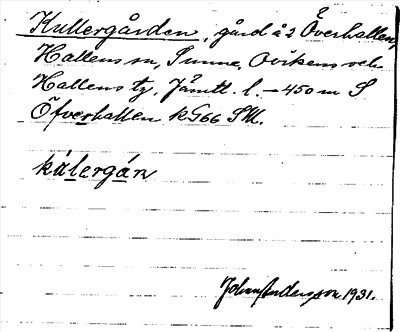 Kullergården, gård å 3 Överhallen,
Hallens sn, Sunne, Ovikens och
Hallens tg, Jämtl. l. – 450 m S
Öfverhallen kG66 SV.
kálergán
Johan Anderson 1931.